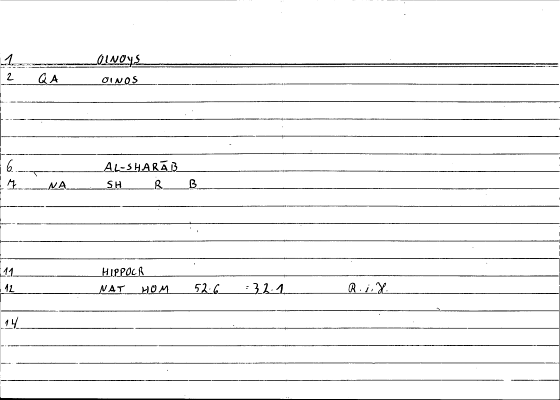 1 OINOYS
2 QA OINOS
6 AL-SHARĀB
7 NA SH R B
11 HIPPOCR
12 NAT HOM 52.6 = 32.1
14